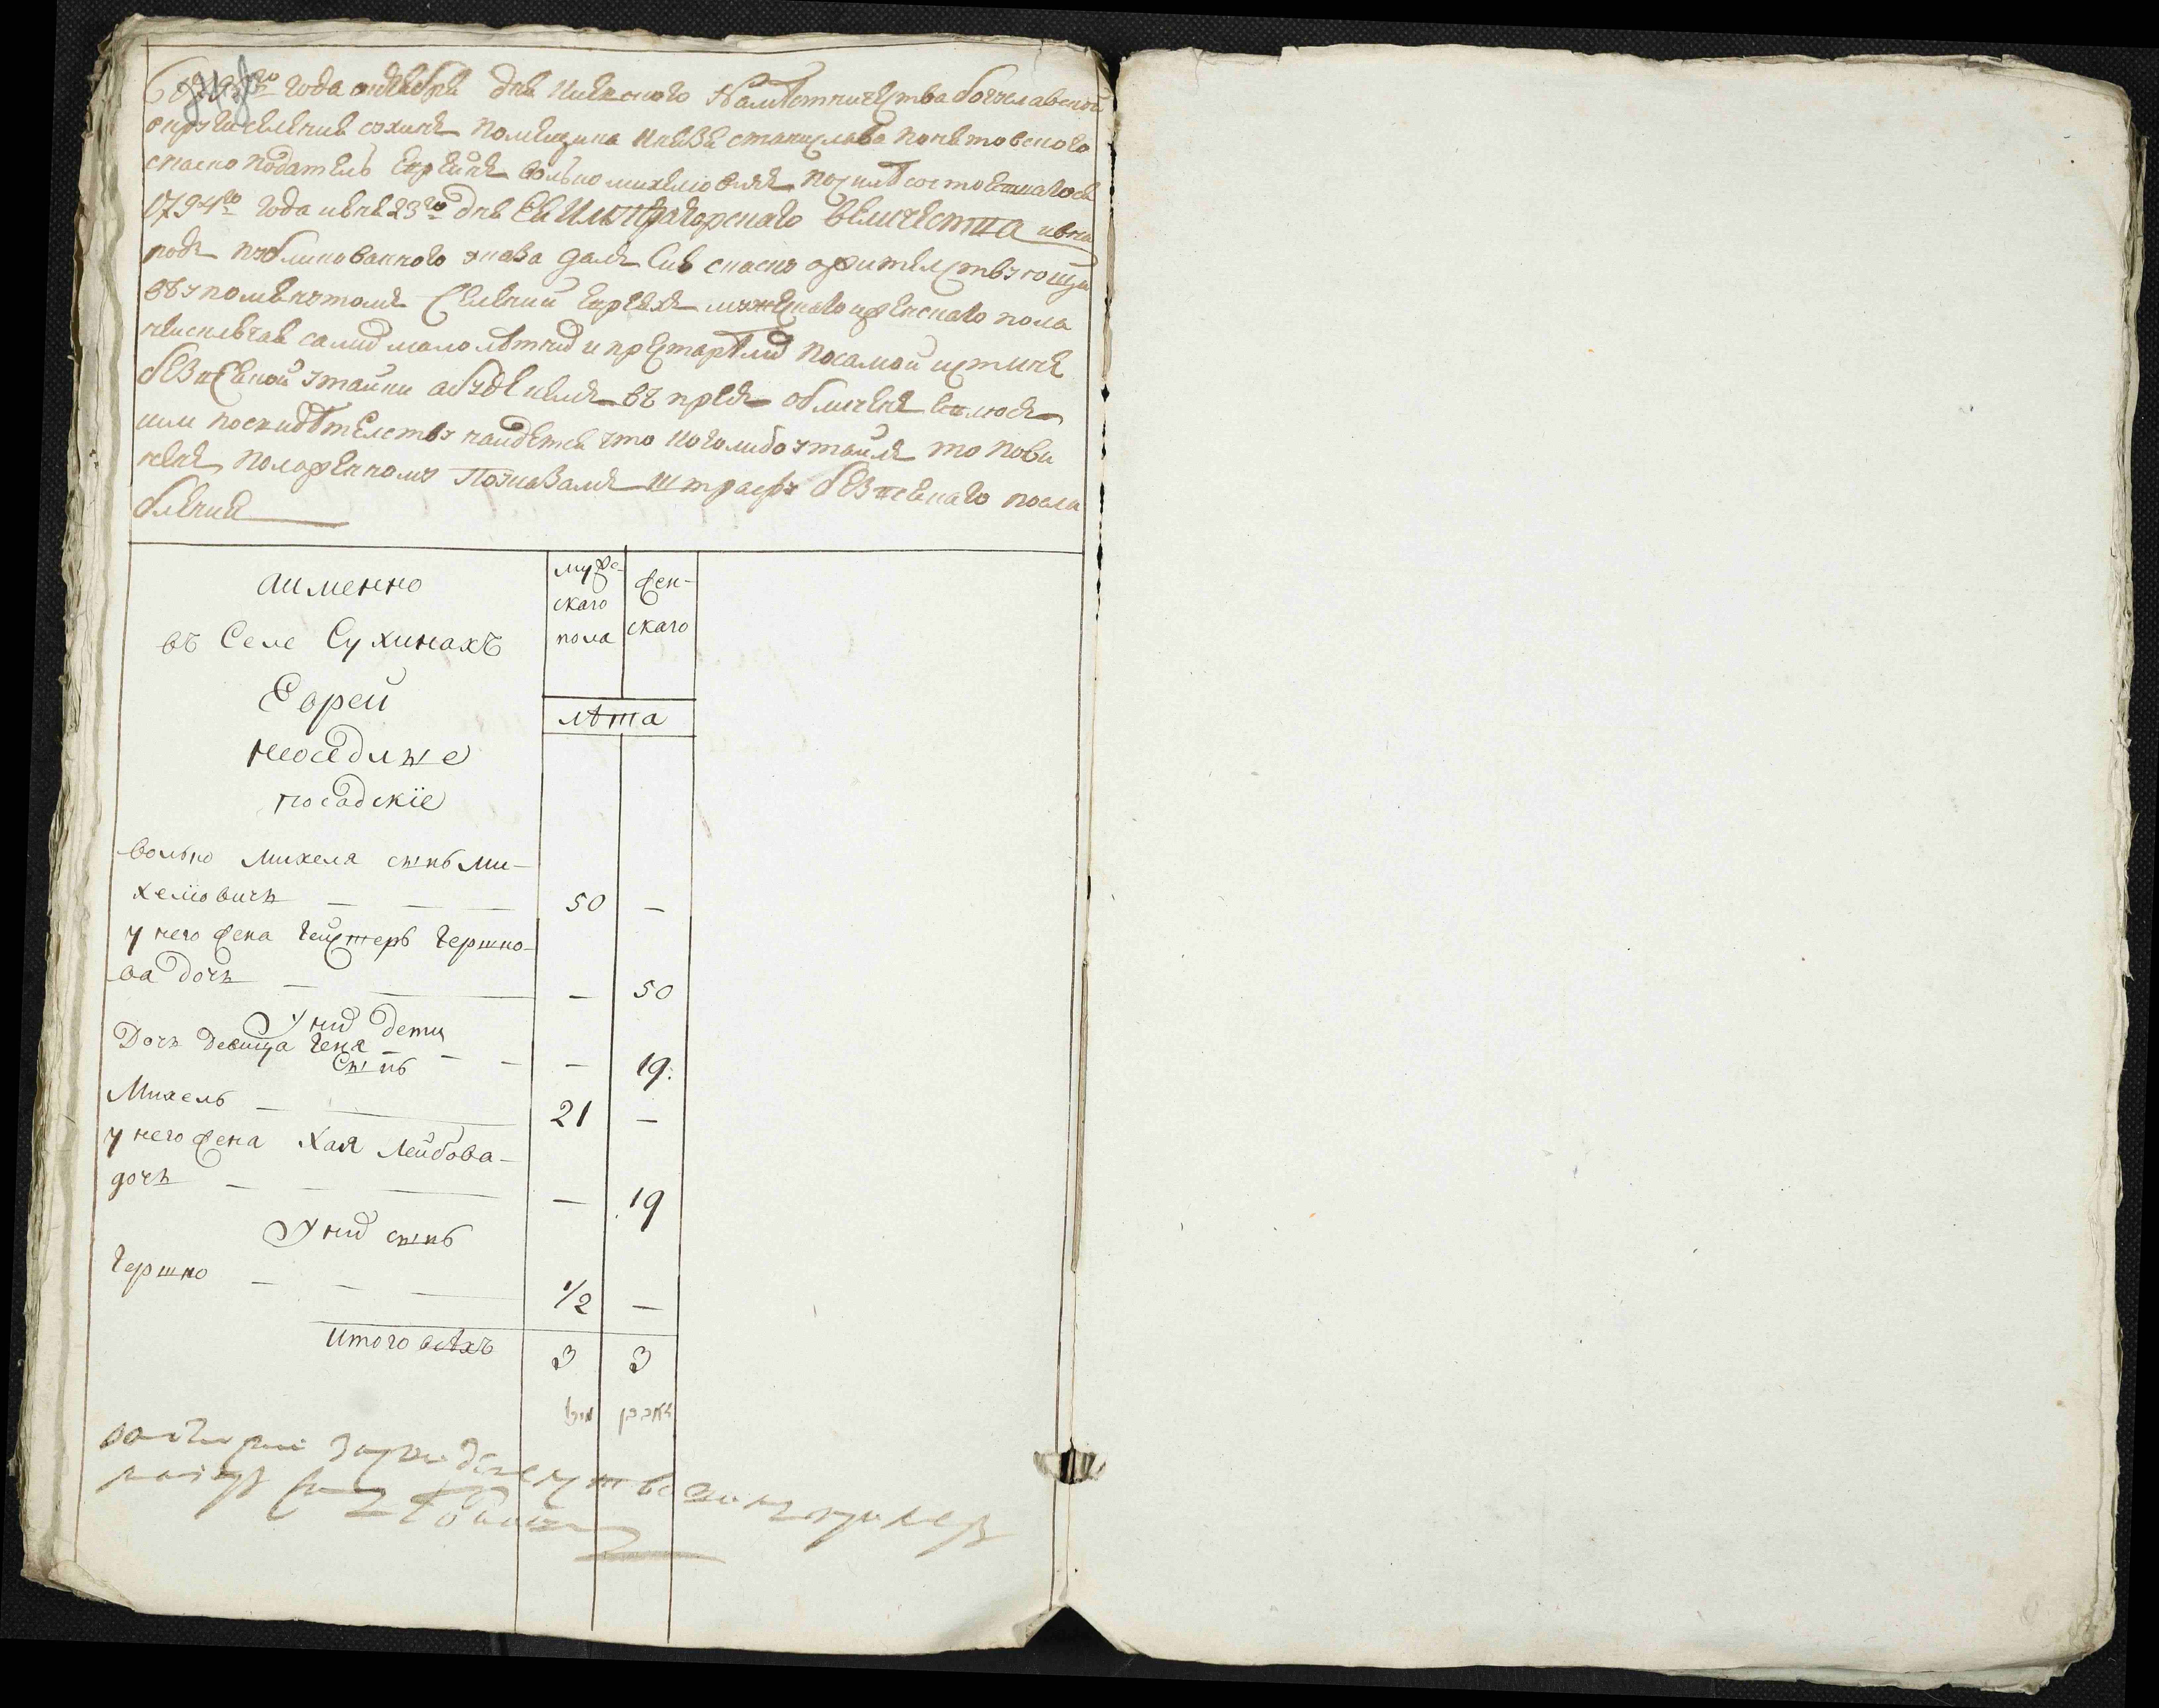 1795го года октября дня Киевского Наместничества богуславской
округи селения сухинъ помещика князя станислава понятовского
сказко податель еврейнъ волько михелювичъ посилѣ состоявшагося
1794го года июня 23го дня Ея Императорскаго величества ивна
родъ публикованного указа далъ сию сказку о жителствующи
въ упомянутомъ селении евреяхъ мужескаго и женскаго пола
неисключая самыхъ малолѣтныхъ и престарѣлыхъ по самой истине
безъ всякой утайки а буде кемъ въ предъ обличенъ явлюся
или по свидѣтелству найдется что кого либо утаилъ то пови
ненъ положенному по указамъ штрафу безъ всякаго посла
бления
а именно
въ Селе Сухинахъ
Еврей
неоседлые
посадские
муже-
скаго
пола
жен-
скаго
лѣта
волько михеля сынъ ми-
хелювичъ — — — 50 —
у него жена гейстеръ гершко-
ва дочь — — — 50
У них дети
Дочь девица геня — — — — 19
Сынъ
Михель — — 21 —
у него жена Хая Лейбова
дочь — — — — 19
У них сынъ
гершко — — — 1/2 —
итого всѣхъ 3 3